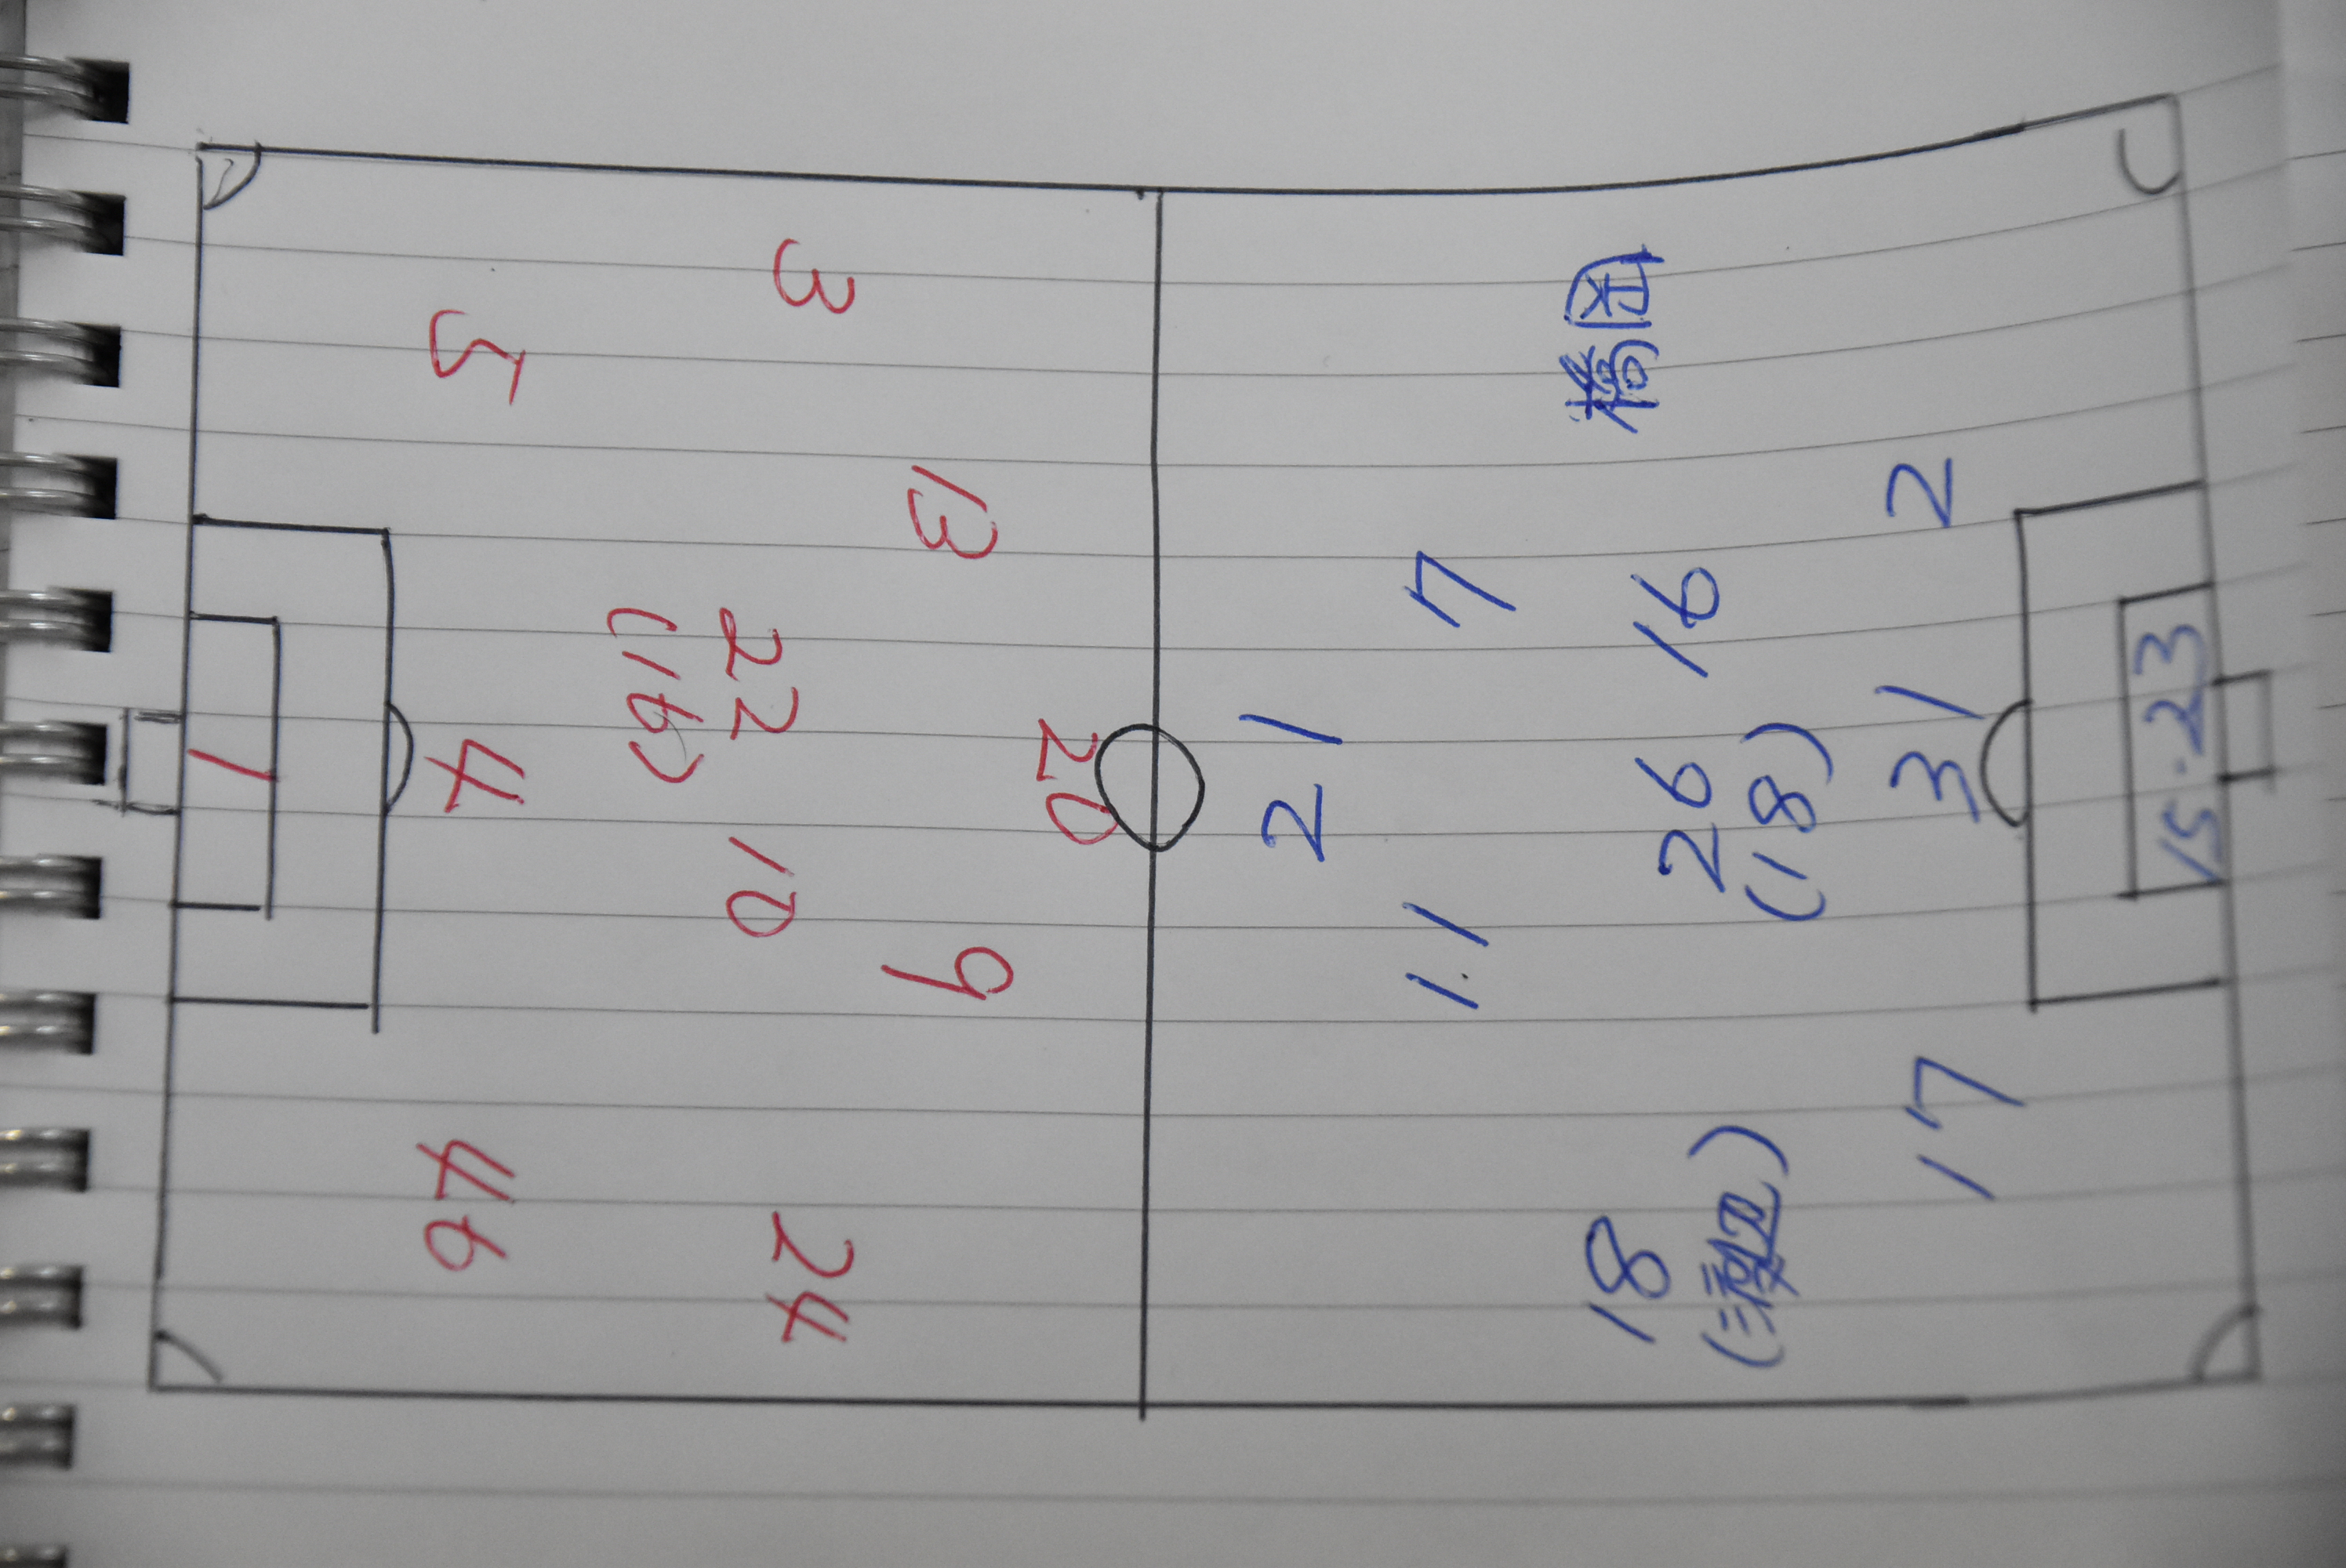 20
13 9
3 22 10 24
(16)
5 4 46
1
21
1.1 7
18 26 16 橋岡
(18)
17 31 2
15.23